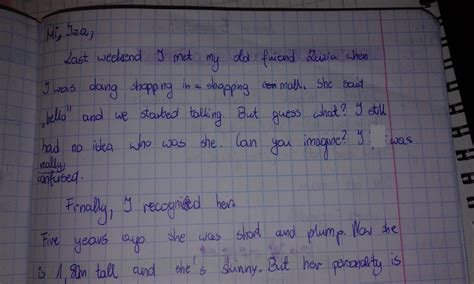 Hi, Iza,
Last weekend I met my old friend Zuzia when
I was doing shopping in a shopping mall. She said
„hello" and we started talking. But guess what? I still
had no idea who was she. Can you imagine? I was
really
confused.
Finally, I recognised her.
Five years ago she was short and plump. Now she
is 1,80m tall and she's skinny. But her personality is